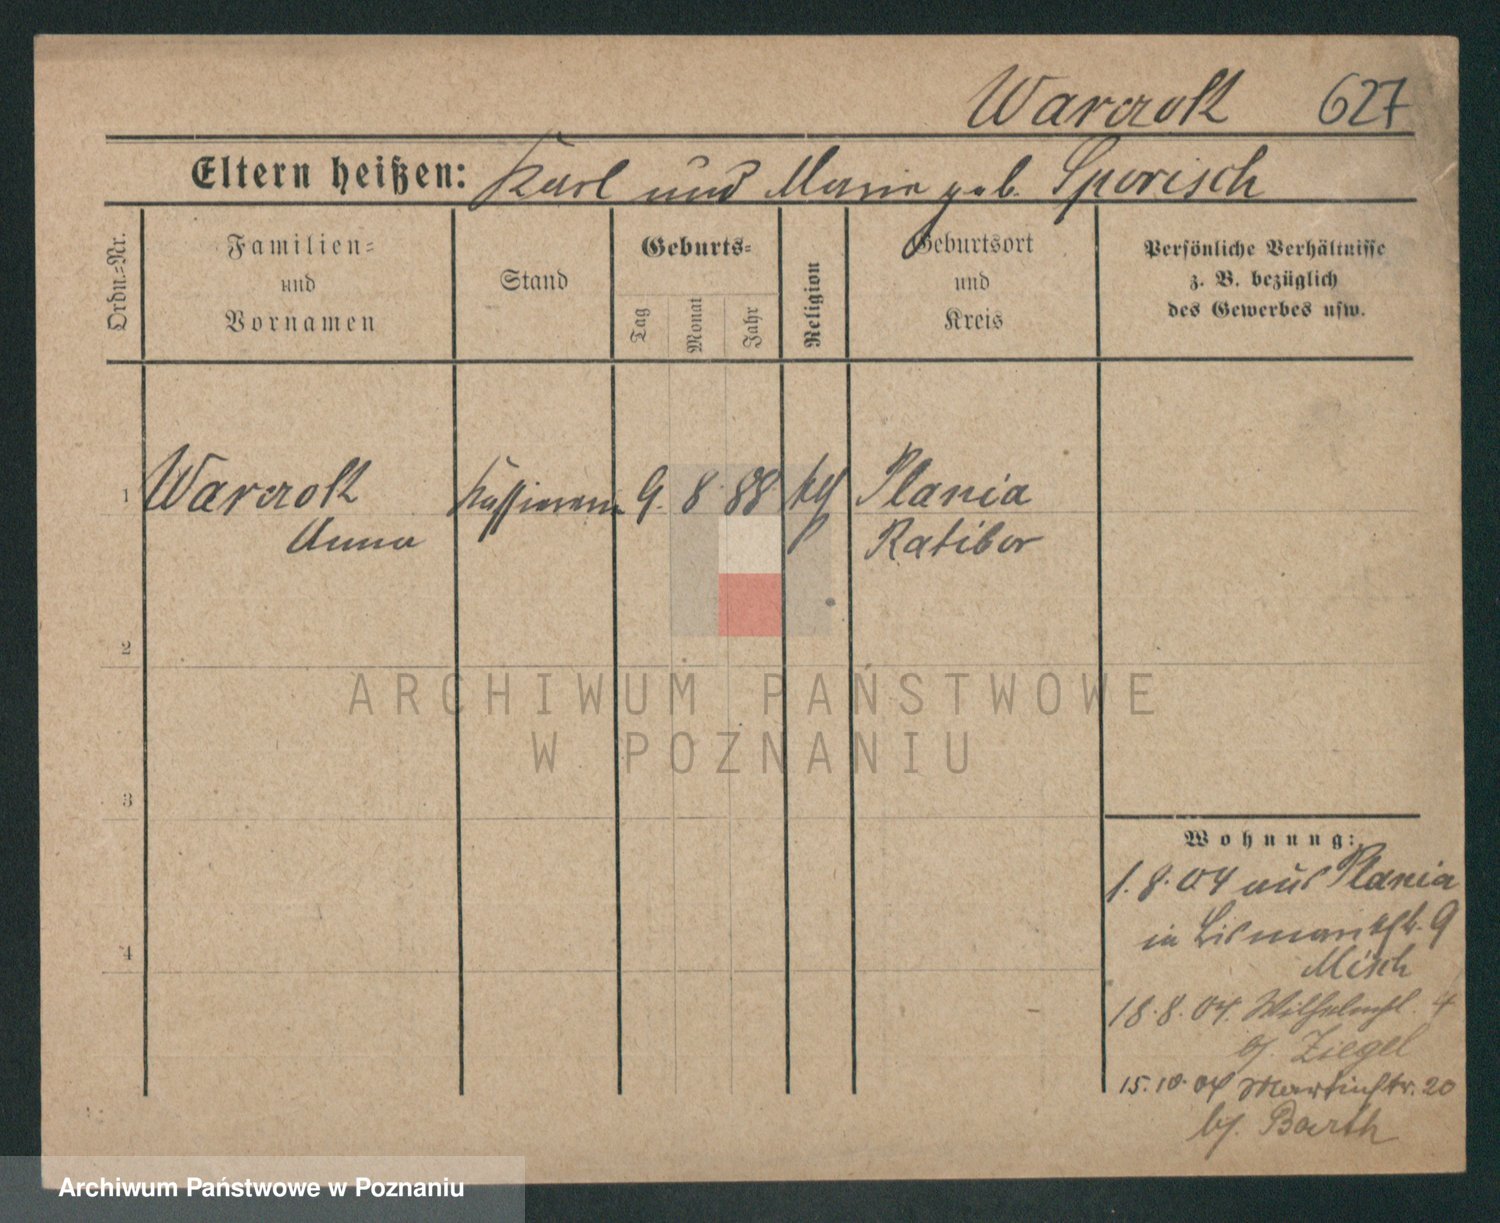 Warczok 627
Eltern heißen: Karl und Marie geb. Sporisch
Ordn.=Nr.
Familien=
und
Vornamen
Stand
Geburts=
Tag
Monat
Jahr
Religion
Geburtsort
und
Kreis
Persönliche Verhältnisse
z. B. bezüglich
des Gewerbes usw.
1 Warczok Kassirerin 9. 8. 88 kth Plania
Anna Ratibor
2
3
4
Wohnung:
1.8.04 aus Plania
in Bismarckstr. 9
Misch
18.8.04. Wilhelmpl. 4
bj. Ziegel
15.10.04 Martinstr. 20
bj. Barth
ARCHIWUM PAŃSTWOWE
W POZNANIU
Archiwum Państwowe w Poznaniu